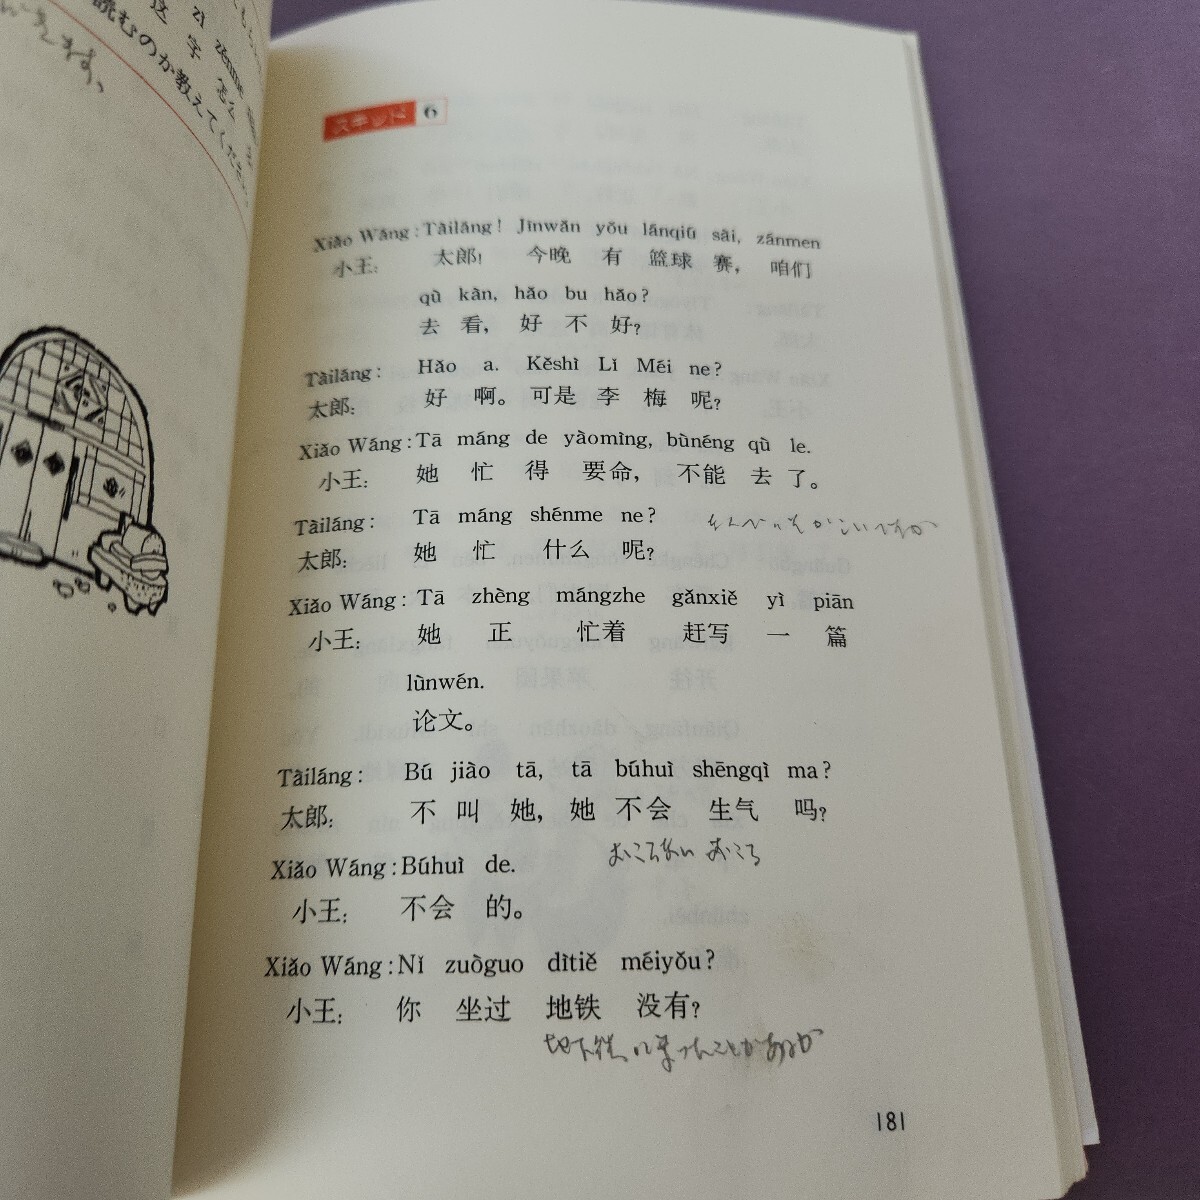 公 zěnme
这 字 怎么
読むのか教えてください。
スキット 6
Xiǎo Wáng: Tàiláng! Jīnwǎn yǒu lánqiú sài, zánmen
小王: 太郎! 今晚 有 篮球 赛, 咱们
qù kàn, hǎo bu hǎo?
去 看, 好 不 好?
Tàiláng: Hǎo a. Kěshì Lǐ Méi ne?
太郎: 好 啊。可是 李 梅 呢?
Xiǎo Wáng: Tā máng de yàomìng, bùnéng qù le.
小王: 她 忙 得 要命, 不能 去 了。
Tàiláng: Tā máng shénme ne?
太郎: 她 忙 什么 呢?
Xiǎo Wáng: Tā zhèng mángzhe gǎnxiě yì piān
小王: 她 正 忙着 赶写 一 篇
lùnwén.
论文。
Tàiláng: Bú jiào tā, tā búhuì shēngqì ma?
太郎: 不 叫 她, 她 不会 生气 吗?
Xiǎo Wáng: Búhuì de.
小王: 不会 的。
Xiǎo Wáng: Nǐ zuòguo dìtiě méiyǒu?
小王: 你 坐过 地铁 没有?
地下鉄に乗ったことがあるか
181